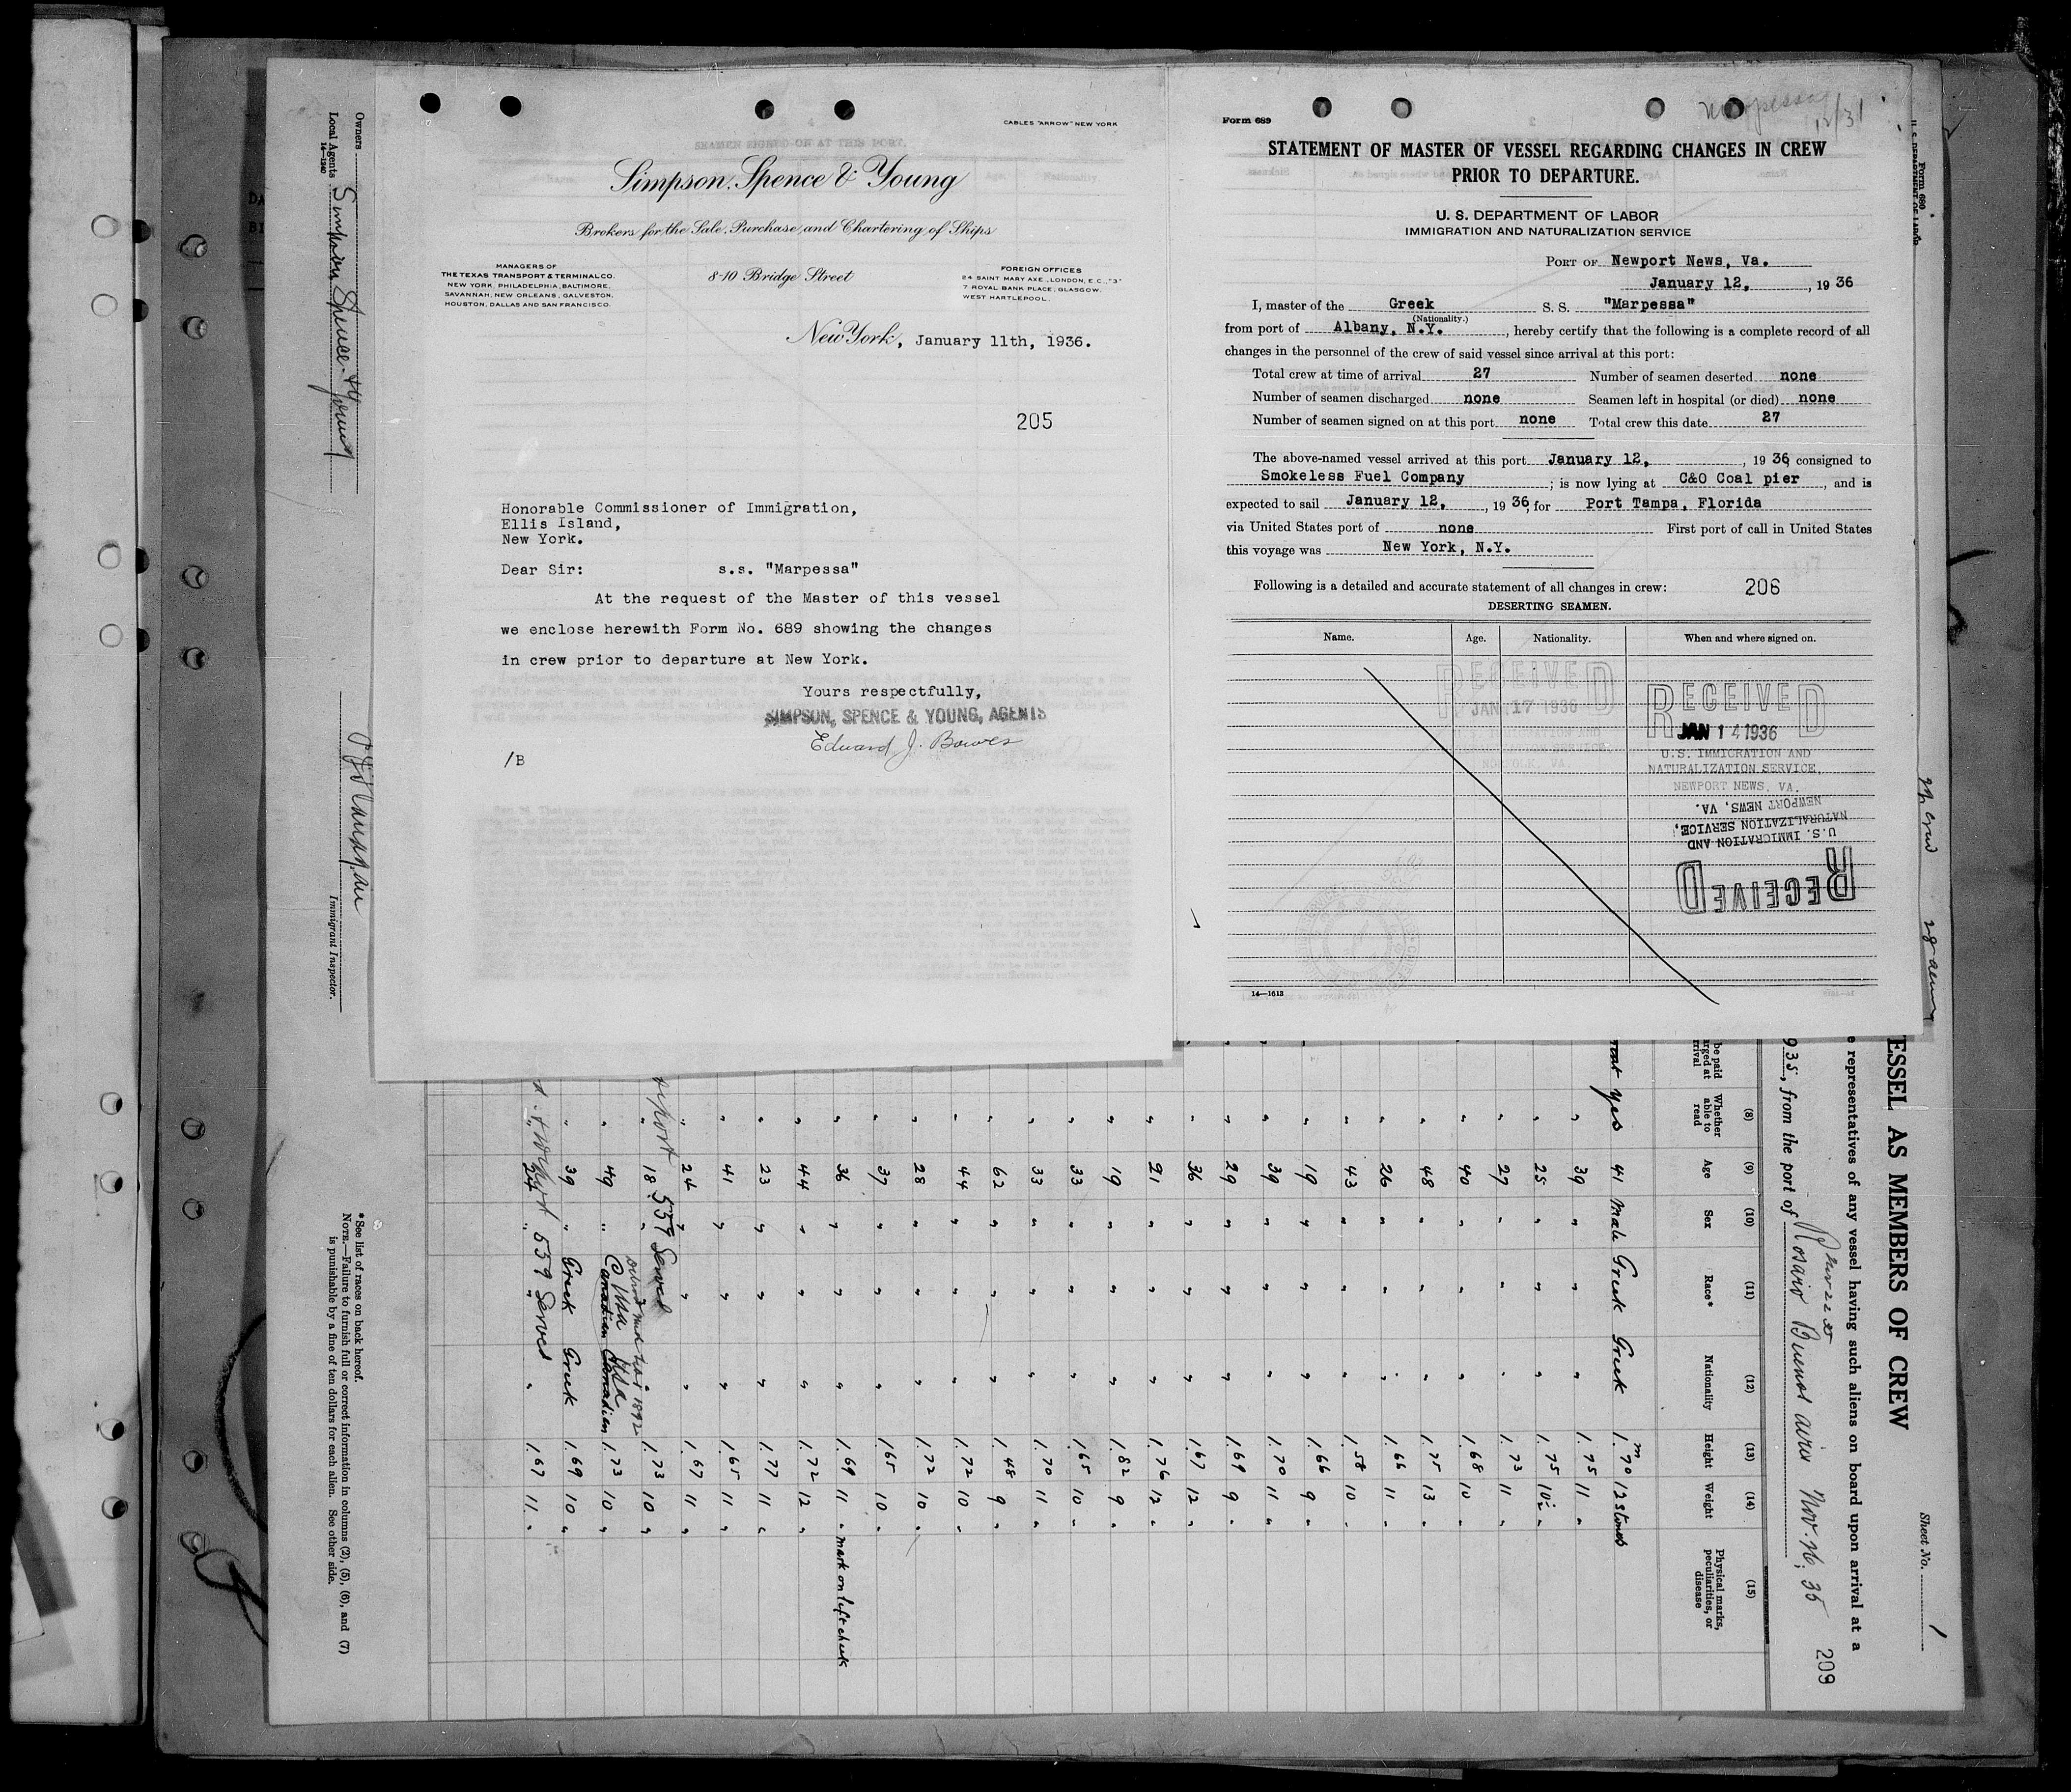 CABLES "ARROW" NEW YORK
SEAMEN SIGNED ON AT THIS PORT.
Simpson, Spence & Young
Brokers for the Sale, Purchase and Chartering of Ships
MANAGERS OF
THE TEXAS TRANSPORT & TERMINAL CO.
NEW YORK, PHILADELPHIA, BALTIMORE,
SAVANNAH, NEW ORLEANS, GALVESTON,
HOUSTON, DALLAS AND SAN FRANCISCO.
8-10 Bridge Street
FOREIGN OFFICES
24 SAINT MARY AXE, LONDON, E.C., "3"
7 ROYAL BANK PLACE, GLASGOW.
WEST HARTLEPOOL.
New York, January 11th, 1936.
205
Honorable Commissioner of Immigration,
Ellis Island,
New York.
Dear Sir: s.s. "Marpessa"
At the request of the Master of this vessel
we enclose herewith Form No. 689 showing the changes
in crew prior to departure at New York.
Yours respectfully,
SIMPSON, SPENCE & YOUNG, AGENTS
Edward J. Bowes
/B
Form 689
Marpessa
12/31
STATEMENT OF MASTER OF VESSEL REGARDING CHANGES IN CREW
PRIOR TO DEPARTURE.
U. S. DEPARTMENT OF LABOR
IMMIGRATION AND NATURALIZATION SERVICE
PORT OF Newport News, Va.
January 12, , 19 36
I, master of the Greek S. S. "Marpessa"
(Nationality.)
from port of Albany, N.Y. , hereby certify that the following is a complete record of all
changes in the personnel of the crew of said vessel since arrival at this port:
Total crew at time of arrival 27 Number of seamen deserted none
Number of seamen discharged none Seamen left in hospital (or died) none
Number of seamen signed on at this port none Total crew this date 27
The above-named vessel arrived at this port January 12, , 19 36, consigned to
Smokeless Fuel Company ; is now lying at C&O Coal pier , and is
expected to sail January 12, , 19 36, for Port Tampa, Florida
via United States port of none First port of call in United States
this voyage was New York, N.Y.
Following is a detailed and accurate statement of all changes in crew: 206
DESERTING SEAMEN.
Name. Age. Nationality. When and where signed on.
RECEIVED
JAN 17 1936
U.S. IMMIGRATION AND
NORFOLK, VA.
RECEIVED
JAN 14 1936
U.S. IMMIGRATION AND
NATURALIZATION SERVICE,
NEWPORT NEWS, VA.
RECEIVED
U.S. IMMIGRATION AND
NATURALIZATION SERVICE,
NEWPORT NEWS, VA.
14—1613
Form 680
U. S. DEPARTMENT OF LABOR
Sheet No. 1
ESSEL AS MEMBERS OF CREW
e representatives of any vessel having such aliens on board upon arrival at a
935, from the port of Rosario Buenos aires Nov. 26, 35
209
(8) (9) (10) (11) (12) (13) (14) (15)
Whether able to read Age Sex Race* Nationality Height Weight Physical marks, peculiarities, or disease
yes 41 Male Greek Greek 1.70 12 stones
" 39 " " " 1.75 11 "
" 25 " " " 1.75 10½ "
" 27 " " " 1.73 11 "
" 40 " " " 1.68 10 "
" 48 " " " 1.75 13 "
" 26 " " " 1.66 11 "
" 43 " " " 1.58 10 "
" 19 " " " 1.66 9 "
" 39 " " " 1.70 11 "
" 29 " " " 1.69 9 "
" 36 " " " 1.67 12 "
" 21 " " " 1.76 12 "
" 19 " " " 1.82 9 "
" 33 " " " 1.65 10 "
" 33 " " " 1.70 11 "
" 62 " " " 1.48 9 "
" 44 " " " 1.72 10 "
" 28 " " " 1.72 10 "
" 37 " " " 1.65 10 "
" 36 " " " 1.69 11 " mark on left cheek
" 44 " " " 1.72 12 "
" 23 " " " 1.77 11 "
" 41 " " " 1.65 11 "
" 24 " " " 1.67 11 "
" 18 " 559 Served 1.73 10 "
" 49 " Canadian Canadian 1.73 10 "
" 39 " Greek Greek 1.69 10 "
" 559 Served " 1.67 11 "
*See list of races on back hereof.
NOTE.—Failure to furnish full or correct information in columns (2), (5), (6), and (7)
is punishable by a fine of ten dollars for each alien. See other side.
Immigrant Inspector.
Owners
Local Agents Simpson Spence & Young
14—1240